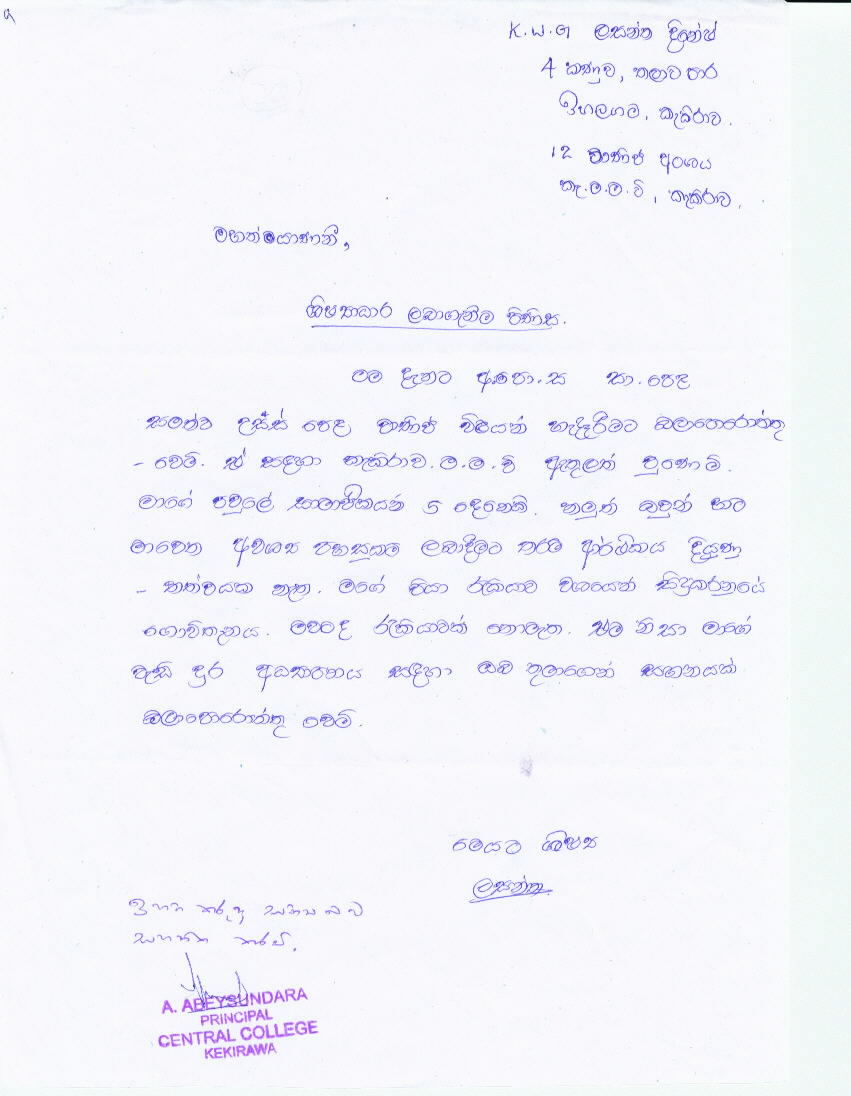 K.W.G ලසන්ත දිනේෂ්
4 කණුව, තලාව පාර
ඉහලගම, කැකිරාව.
12 වාණිජ අංශය
කැ.ම.ම.වි, කැකිරාව.
මහත්මයාණනි,
ශිෂ්‍යාධාර ලබාගැනීම පිණිස.
මම දැනට අ.පො.ස සා.පෙළ
සමත්ව උසස් පෙළ වාණිජ විෂයන් හැදෑරීමට බලාපොරොත්තු
- වෙමි. ඒ සඳහා කැකිරාව.ම.ම.වි ඇතුලත් වුණෙමි.
මාගේ පවුලේ සාමාජිකයන් 5 දෙනෙකි. නමුත් ඔවුන් හට
මාවෙත අවශ්‍ය පහසුකම් ලබාදීමට තරම් ආර්ථිකය දියුණු
- තත්වයක නැත. මගේ පියා රැකියාව වශයෙන් සිදුකරනුයේ
ගොවිතැනය. මවටද රැකියාවක් නොමැත. එම නිසා මාගේ
වැඩි දුර අධ්‍යාපනය සඳහා ඔබ තුමාගෙන් සහනයක්
බලාපොරොත්තු වෙමි.
මෙයට ශිෂ්‍ය
ලසන්ත
ඉහත කරුණු සත්‍ය බව
සහතික කරමි.
A. ABEYSUNDARA
PRINCIPAL
CENTRAL COLLEGE
KEKIRAWA